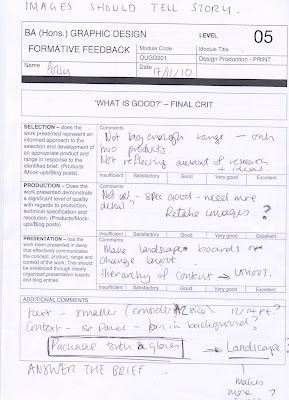 IMAGES SHOULD TELL STORY.
BA (Hons.) GRAPHIC DESIGN
LEVEL 05
FORMATIVE FEEDBACK
Module Code
OUGD201
Module Title
Design Production - PRINT
Name
Date
17/11/10
'WHAT IS GOOD?' – FINAL CRIT
SELECTION – does the
work presented represent an
informed approach to the
selection and development of
an appropriate product and
range in response to the
identified brief. (Products
/Mock-ups/Blog posts).
Comments
Not big enough range – only
two products.
Not reflecting amount of research
+ ideas
Insufficient Satisfactory Good Very good Excellent
PRODUCTION – Does the
work presented demonstrate
a significant level of quality
with regards to production,
technical specification and
resolution. (Products/Mock-
ups/Blog posts)
Comments
– spec good – need more
detail,
Retake images ?
Insufficient Satisfactory Good Very Good Excellent
PRESENTATION – has the
work been presented in away
that effectively communicates
the concept, product, range and
context of the work. This should
be evidenced through clearly
organized presentation boards
and blog entries
Comments
Make landscape boards or
change layout
Hierarchy of content →
Insufficient Satisfactory Good Very Good Excellent
ADDITIONAL COMMENTS
text – smaller (consider size) 12/14pt?
Context – in background?
Package torch & gloves → Landscape?
ANSWER THE BRIEF.
↓
makes
more ?